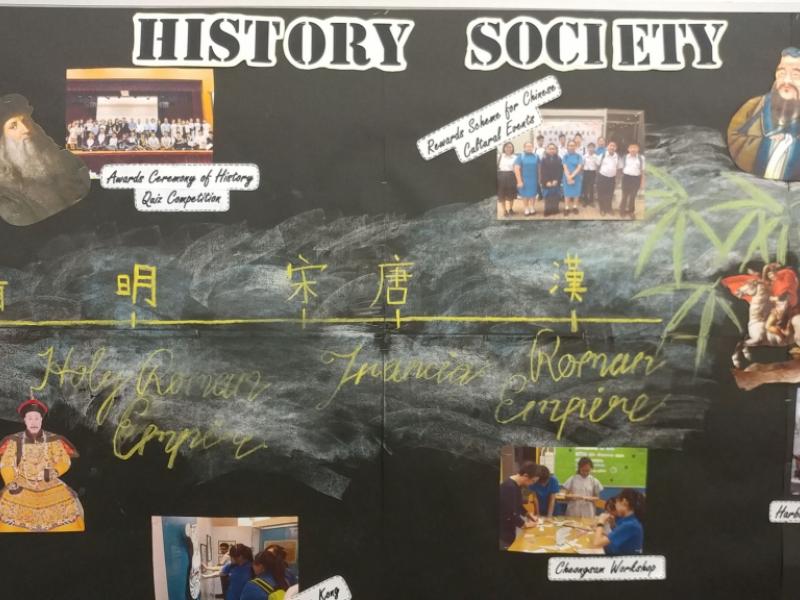 HISTORY SOCIETY
Rewards Scheme for Chinese
Cultural Events
Awards Ceremony of History
Quiz Competition
明 宋 唐 漢
Holy Roman
Empire
Francia
Roman
Empire
Cheongsam Workshop
Kong